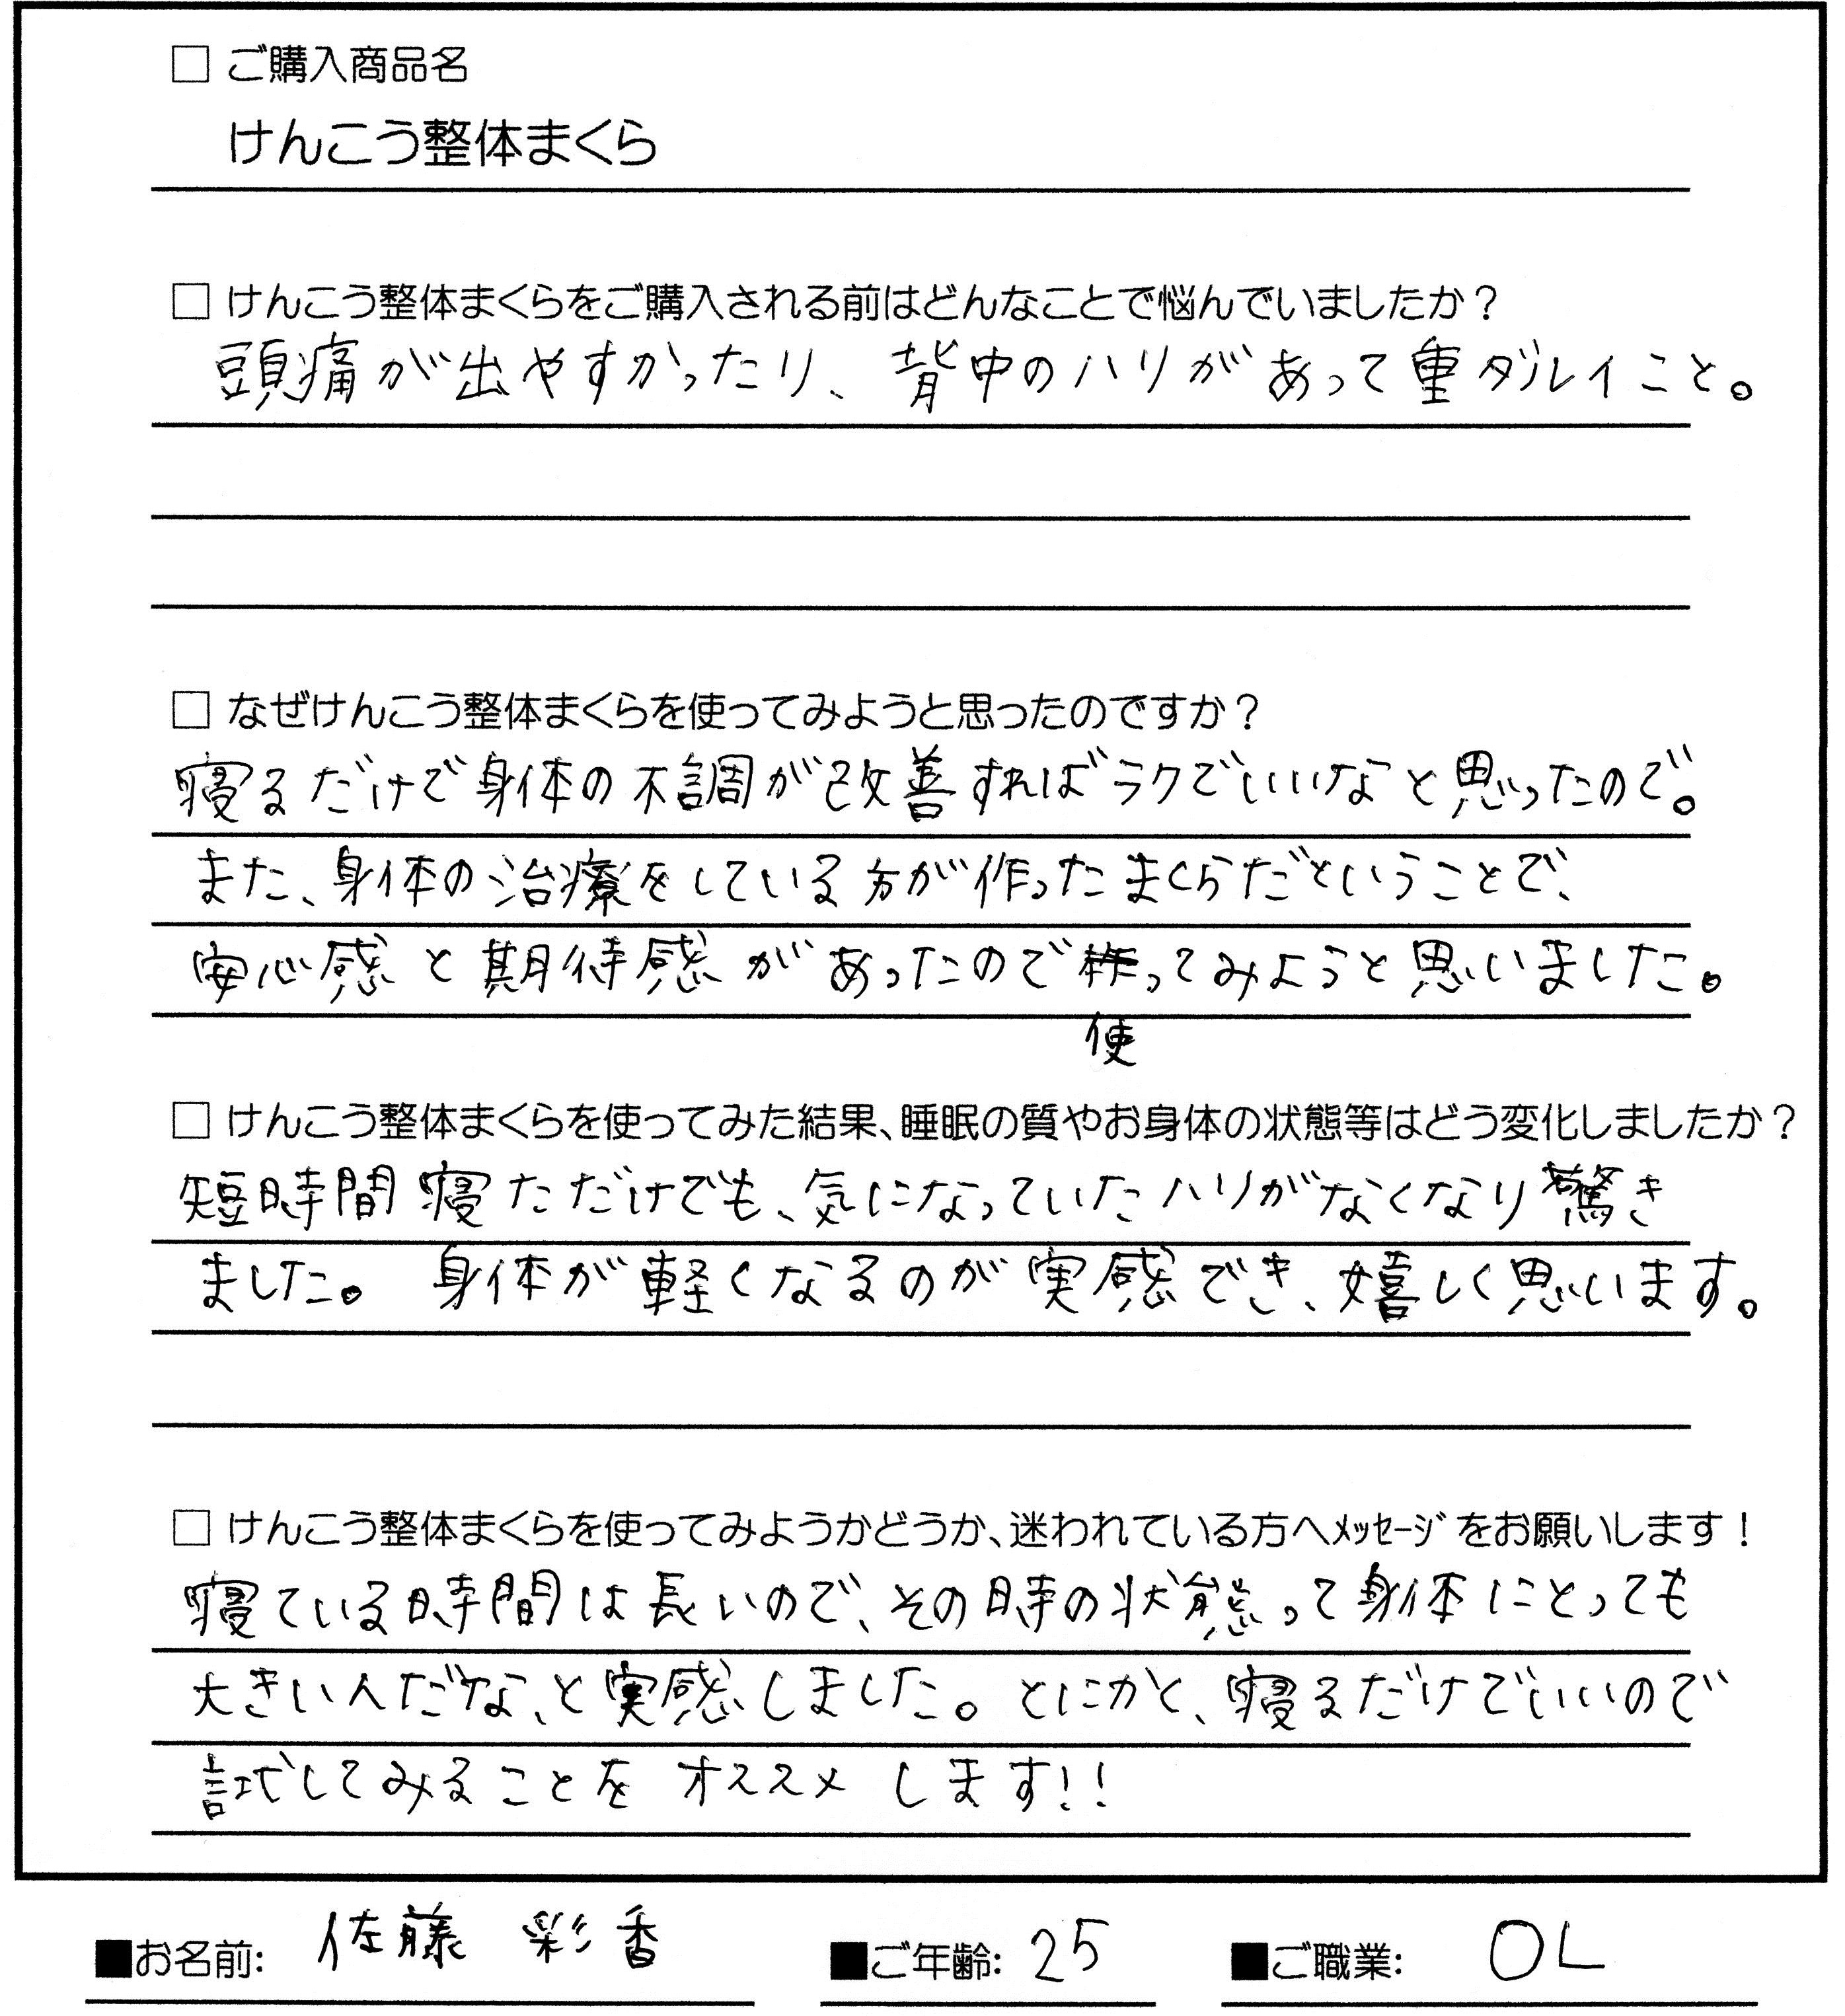 □ ご購入商品名
けんこう整体まくら
□ けんこう整体まくらをご購入される前はどんなことで悩んでいましたか？
頭痛が出やすかったり、背中のハリがあって重ダルイこと。
□ なぜけんこう整体まくらを使ってみようと思ったのですか？
寝るだけで身体の不調が改善すればラクでいいなと思ったので。
また、身体の治療をしている方が作ったまくらだということで、
安心感と期待感があったので作ってみようと思いました。
使
□ けんこう整体まくらを使ってみた結果、睡眠の質やお身体の状態等はどう変化しましたか？
短時間寝ただけでも、気になっていたハリがなくなり驚き
ました。身体が軽くなるのが実感でき、嬉しく思います。
□ けんこう整体まくらを使ってみようかどうか、迷われている方へﾒｯｾｰｼﾞをお願いします！
寝ている時間は長いので、その時の状態って身体にとっても
大きいんだな、と実感しました。とにかく、寝るだけでいいので
試してみることをオススメします!!
■お名前: 佐藤 彩香 ■ご年齢: 25 ■ご職業: OL